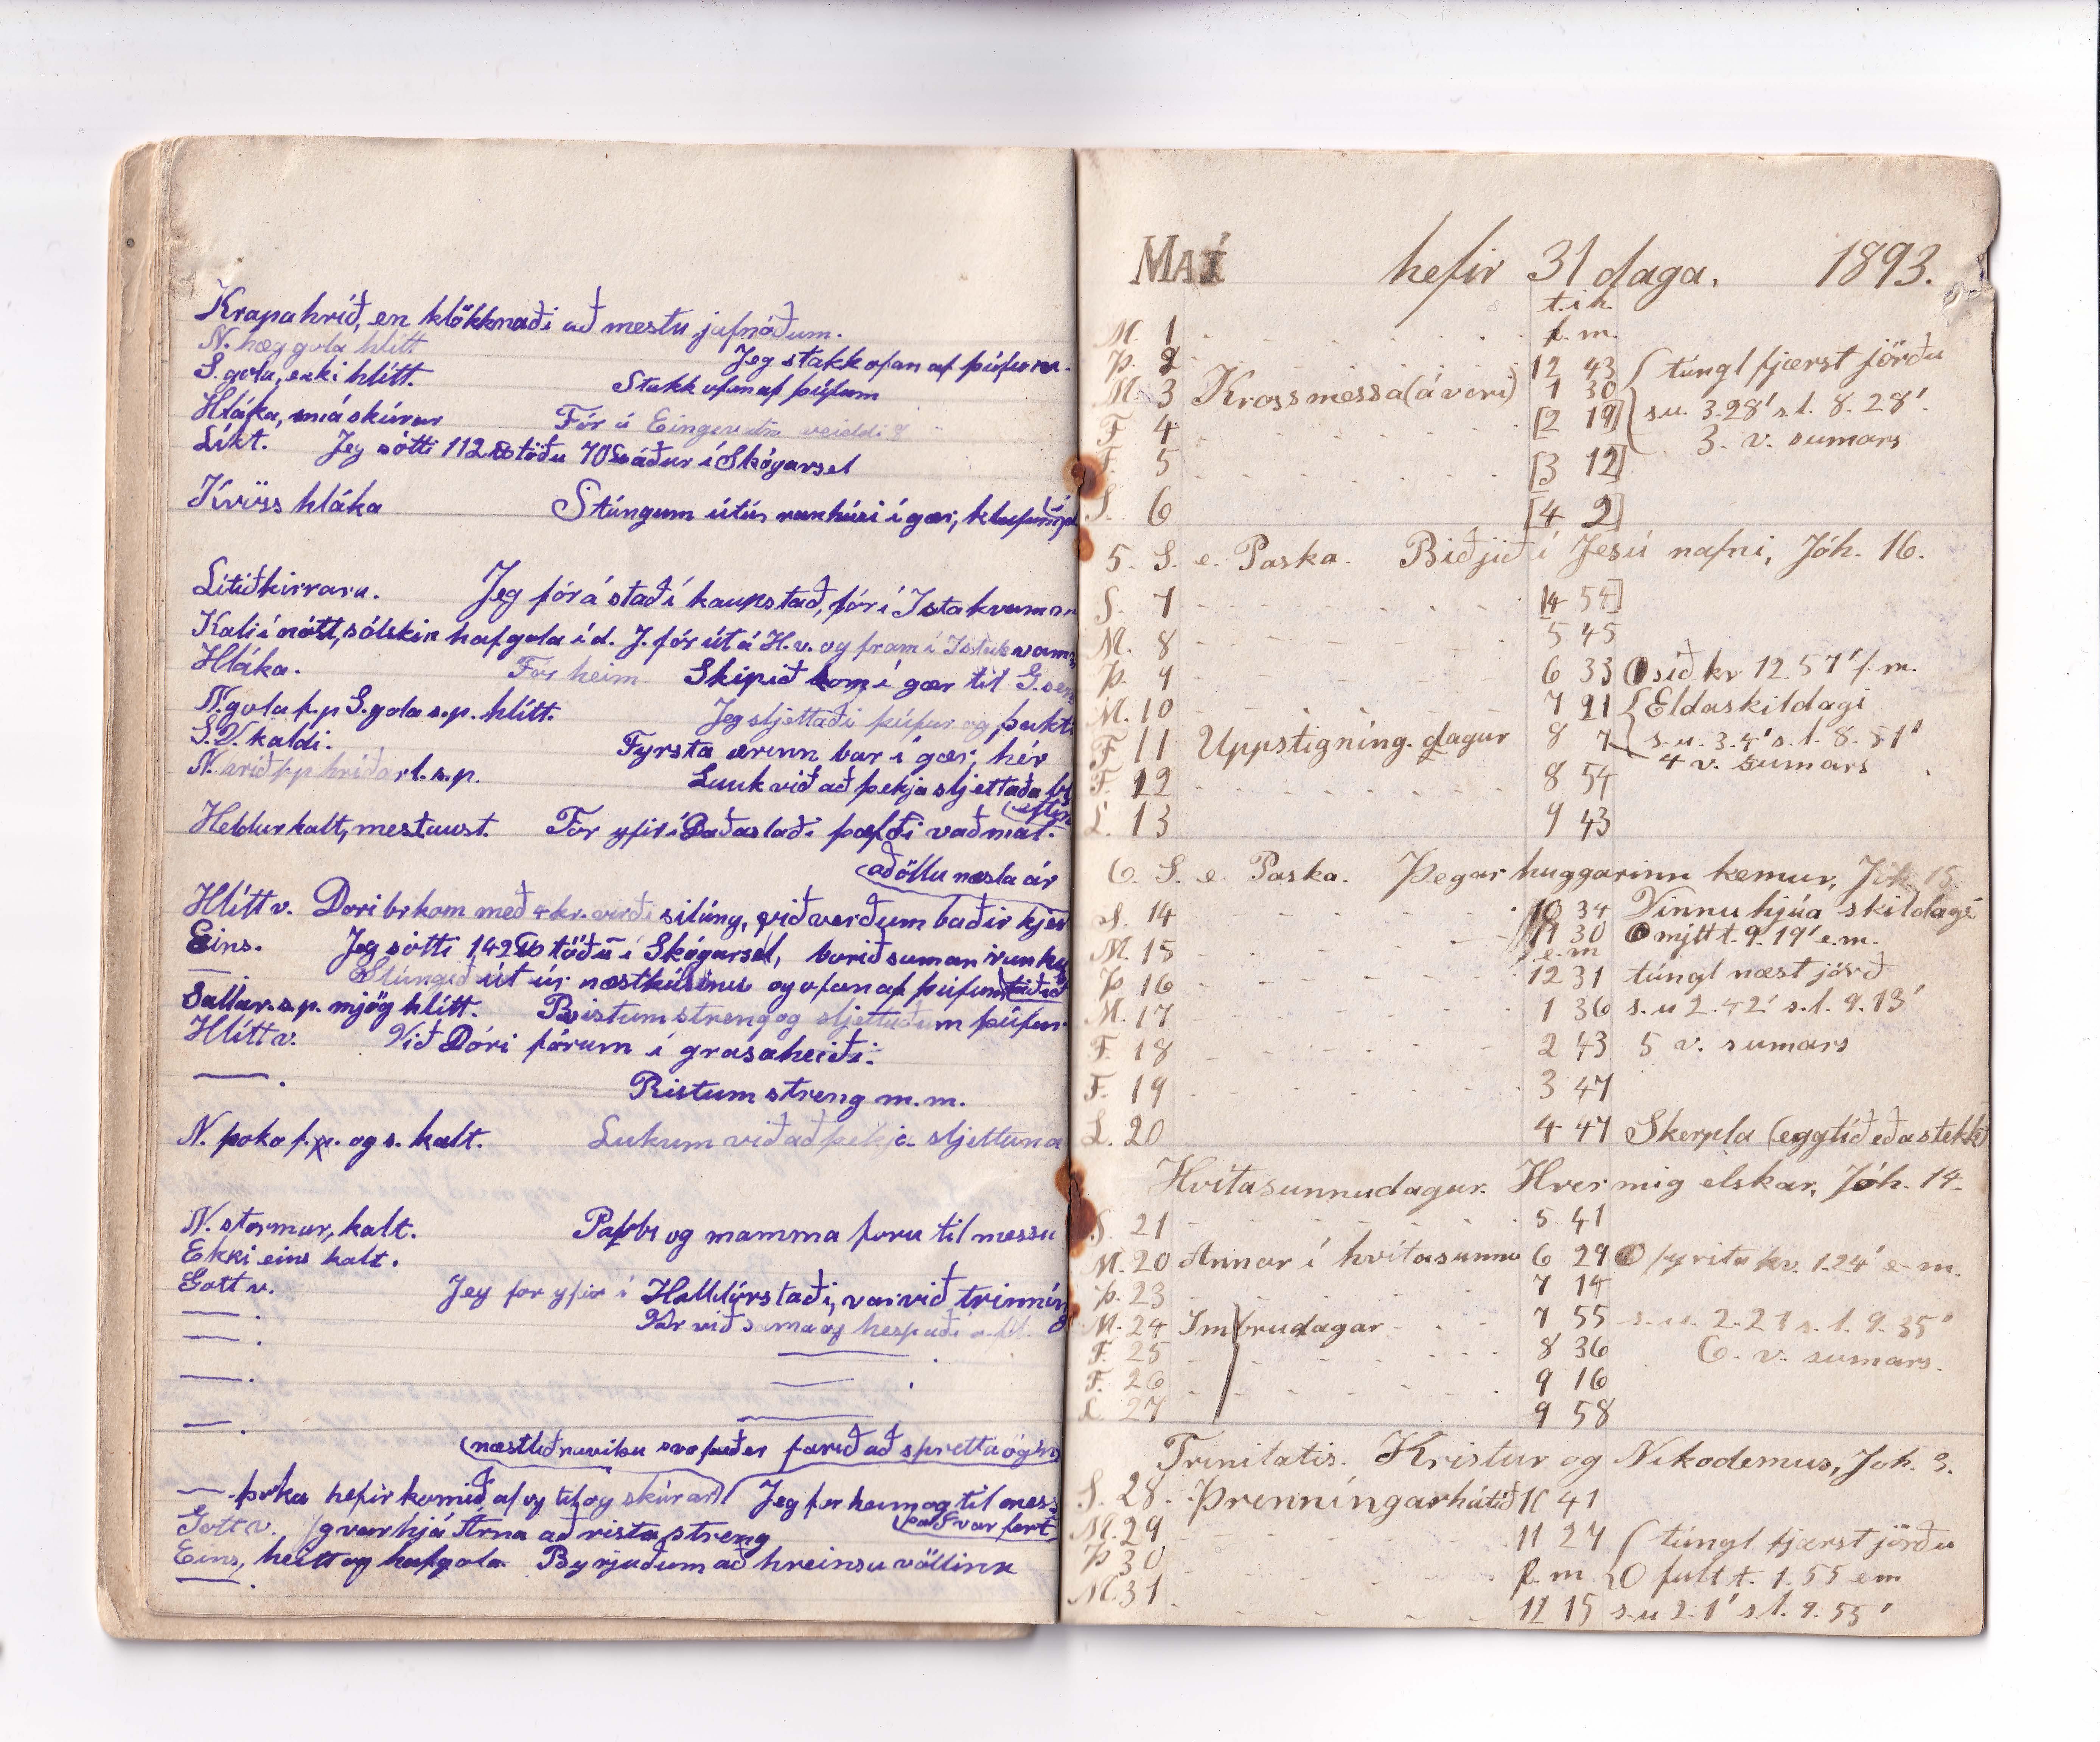 Krapahríð, en klökknaði að mestu jafnóðum.
N. hæg gola hlítt
Jeg stakk ofan af þúfum.
S. gola, ekki hlítt.
Stakk ofan af þúfum
Hláka, smá skúrar
Fór í veiddi 8
Líkt. Jeg sótti 112 ℔ töðu 70 ℔ áður í Skógarsel
Kviss hláka
Stúngum út úr í gær,
Lítið kirrara. Jeg fór á stað í kaupstað, fór í Ístakvamm
Kali í nótt, sólskin hafgola í d. J. fór út á H.v. og fram í
Hláka. Fór heim Skipið kom í gær til
N. gola f.p S. gola s.p. hlítt. Jeg sljettaði þúfur og þakti
S.V. kaldi. Fyrsta ærinn bar í gær, hér
N. hríðarl. s.p. Lauk við að þekja sljettaða
Heldur kalt, mest aust. Fór yfir í þæfði vaðmál.
að öllu næsta ár
Hlítt v. Dori br kom með 4 kr. virði silúng, við verðum baðir hjer
Eins. Jeg sótti 142 ℔ töðu í Skógarsel, borið saman
Stúngið út úr og ofan af þúfum
Sallar. s.p. mjög hlítt. Ristum streng og sljettuðum þúfur
Hlítt v. Við Dóri fórum í grasaheiði.
— . Ristum streng m.m.
N. þoka f.p. og s. kalt. Lukum við að þekja sljettuna
N. stormur, kalt. Pabbi og mamma foru til messu
Ekki eins kalt.
Gott v. Jeg for yfir í Halldórstaði, var við
— . Var við sama og hespaði
— .
— .
(næstliðna viku farið að spretta
— . þoka hefir komið af og til og skúrar) Jeg for heim og til mess
það var fert
Gott v. Jg var hjá Arna að rista streng
Eins, heitt og hafgola Byrjuðum að hreinsa völlinn
— .
MAÍ hefir 31 daga. 1893.
t.í.h.
f. m.
M. 1
Þ. 2 12 43 túngl fjærst jörðu
M. 3 Krossmessa (á vori) 1 30 s.u. 3.28' s.l. 8.28'.
F 4 [2 19] 3. v. sumars
F. 5 [3 12]
L. 6 [4 2]
5. S. e. Paska. Biðjið í Jesú nafni, Jóh. 16.
S. 7 [4 54]
M. 8 5 45
Þ. 9 6 33 síð. kv 12.57' f.m.
M. 10 7 21 Eldaskildagi
F 11 Uppstigning.dagur 8 7 s.u. 3.4' s.l. 8.51'
F. 12 8 54 4 v. sumars
L. 13 9 43
6. S. e. Paska. Þegar huggarinn kemur, Jóh. 15.
S. 14 10 34 Vinnuhjúa skildagi
M. 15 11 30 nýtt t. 9.19' e.m.
e. m
Þ 16 12 31 túngl næst jörð
M. 17 1 36 s.u 2.42' s.l. 9.13'
F. 18 2 43 5 v. sumars
F. 19 3 47
L. 20 4 47 Skerpla (eggtíð eða stekk)
Hvítasunnudagur. Hver mig elskar, Jóh. 14.
S. 21 5 41
M. 20 Annar í hvítasunnu 6 29 fyrsta kv. 1.24' e.m.
Þ. 23 7 14
M. 24 Imbrudagar 7 55 s.u. 2.21 s.l. 9.35'
F. 25 8 36 6. v. sumars.
F. 26 9 16
L. 27 9 58
Trinitatis. Kristur og Nikodemus, Joh. 3.
S. 28. Þrenníngarhátíð 10 41
M. 29 11 27 túngl fjærst jörðu
Þ 30 f. m fullt t. 1.55 em
M. 31 12 15 s.u 2.1' s.l. 9.55'